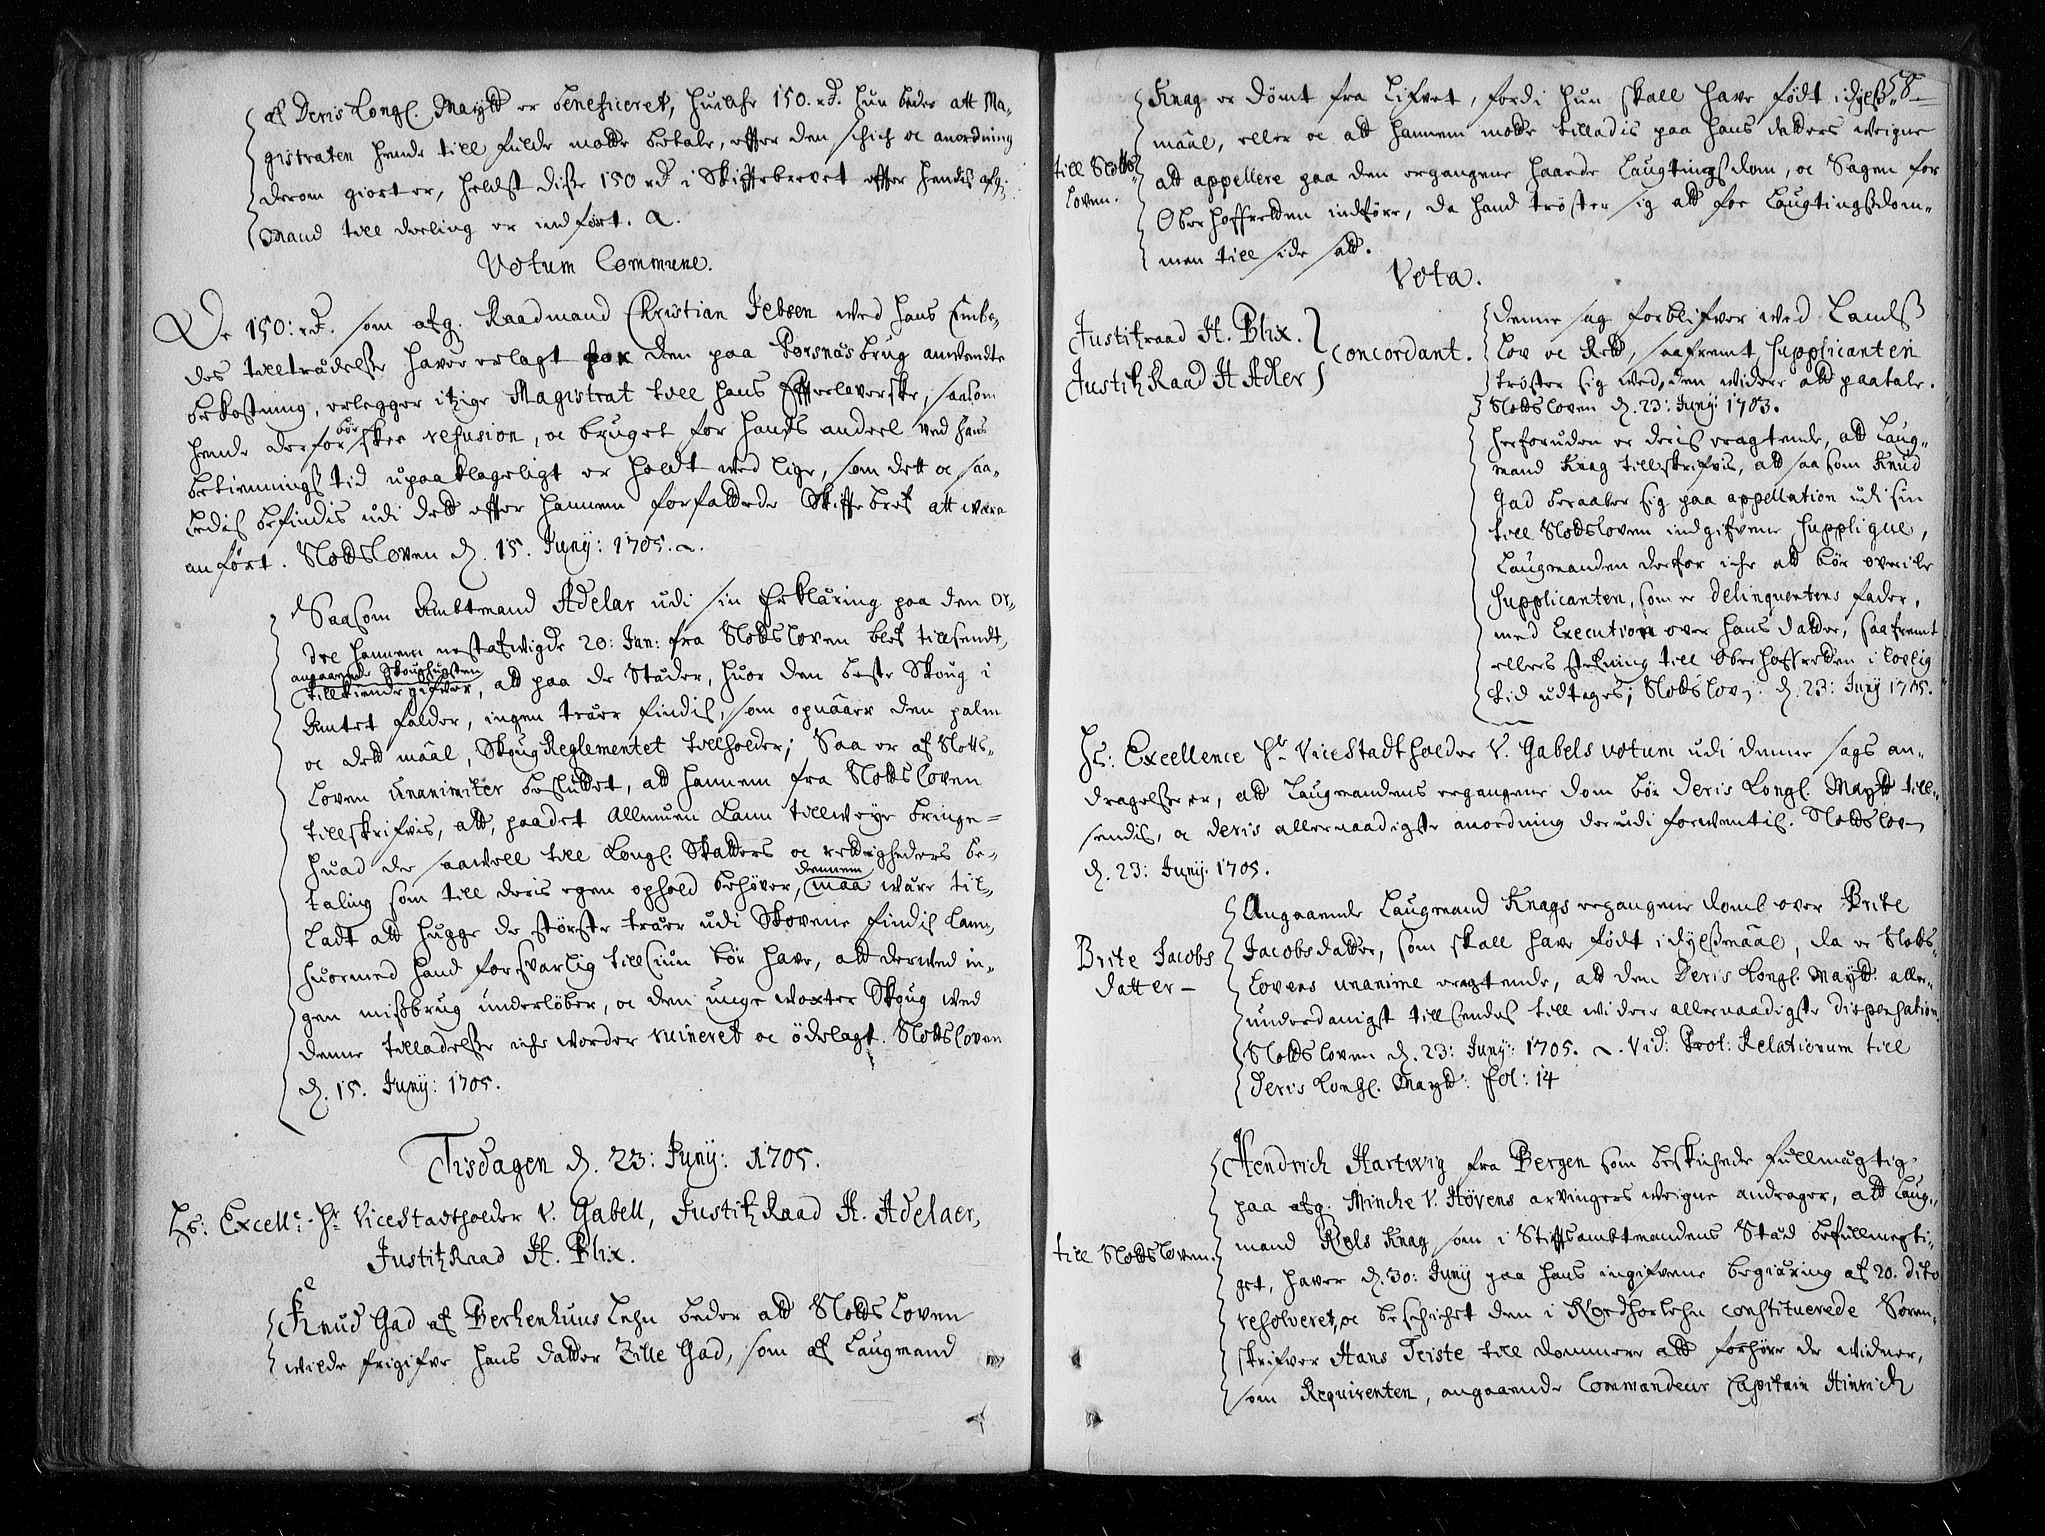 af Deris Kongl. Maytt er beneficeret, huilche 150. rd. hun beder att Ma-
gistraten hende till fulde motte betale, effter den schich oc anordning
derom giort er, helst disse 150 rd i Skifftebrevet effter hendis afg:
Mand till deeling er indført. a.
Votum Commune.
De 150: rd. som afg. Raadmand Christian Jebsen wed hans Embe-
des tilltrædelse haver erlagt for den paa Porsnæs brug anwendte
bekostning, erlegger itzige Magistrat till hans Effterleverske, saasom
hende derfor bør skee refusion, oc bruget for hands andeel wed hans
betiennings tid upaaklageligt er holdt wed lige, som dett oc saa-
ledis befindis udi dett effter hannem forfattede Skifftebref att wære
anført. Slottsloven d. 15. Junÿ: 1705. a.
Saasom Ambtmand Adelar udi sin Erklæring paa den Or-
dre hannem nestafwigte 20: Jan: fra Slottsloven blef tillsendt,
angaaende Skoughugsten
tillkiende gifver, att paa de Stæder, huor den beste Skoug i
Amtet falder, ingen træer findis, som opnaaer den palm
oc dett maal, Skoug Reglementet tillholder; Saa er af Slotts-
loven unanimiter besluttet, att hannem fra Slottsloven
tillskrifvis, att, paadet Allmuen kann tillweye bringe
huad de saawell till Kongl. Skatters oc rettigheders be-
taling som till deris egen ophold behøver, dennem maa wære til-
ladt att hugge de største træer udi Skovene findis kann,
huormed hand forsvarlig tillsiun bør have, att derwed in-
gen misbrug underløber, oc den unge woxter Skoug wed
denne tilladelse iche worder ruineret oc ödelagt. Slottsloven
d. 15. Junÿ: 1705.
Tisdagen d. 23: Junÿ: 1705.
Hs: Excellce. Hr ViceStadtholder V. Gabell, Justitz Raad H. Adelaer,
Justitz Raad H. Blix.
Knud Gad af Berkenhuus Lehn beder att Slotts Loven
wilde frigifve hans datter Zille Gad, som af Laugmand
58
Knag er dømt fra Lifvet, fordi hun skall have født i dyls-
maal, eller oc att hannem motte tilladis paa hans datters weigne
till Slotts
Loven.
att appellere paa den ergangene haarde Laugtingsdom, oc Sagen for
Oberhoffretten indføre, da hand trøster sig att faa Laugtingsdom-
men till side satt.
Vota.
Justitzraad H. Blix.
Justitz Raad H Adler
concordant.
Denne sag forblifver wed Lands
Lov oc Rett, saafremt Supplicanten
trøster sig wed, den widere att paatale.
Slottsloven d. 23: Junÿ 1703.
herforuden er deris eragtende, att Laug-
mand Knag tillskrifvis, att saasom Knud
Gad beraaber sig paa appellation udi sin
till Slottsloven indgifvene Supplique,
Laugmanden derfor iche att bør overile
Supplicanten, som er delinquentens fader,
med Execution over hans datter, saafremt
ellers stefning till Oberhoffretten i lovlig
tid udtages; Slottslov: d. 23: Junÿ 1705.
Hs: Excellence Hr ViceStadtholder V. Gabels votum udi denne sags an-
dragelse er, att Laugmandens ergangene dom bør deris Kongl. Maytt till-
sendis, oc deris allernaadigste anordning derudi forwentis. Slottslov
d. 23: Junÿ. 1705.
Brite Jacobs
datter -
Angaaende Laugmand Knags ergangene domb over Brite
Jacobsdatter, som skall have født i dylssmaal, da er Slotts-
Lovens unanime eragtende, att den Deris Kongl. Maytt aller-
underdanigst tillsendes till widere allernaadigste dispensation.
Slottsloven d. 23: Junÿ: 1705. a. Vid: Prot: Relationum till
Deris Kongl. Maytt: fol: 14
Hendrich Hartwig fra Bergen som beskichede fullmægtig
paa afg. Minche V. Høvens arvingers weigne andrager, att Laug-
till Slottsloven.
mand Niels Knag som i Stifftsambtmandens Stæd befullmegti-
get, haver d. 30: Junÿ paa hans ingifvene begiæring af 20. dito
resolveret, oc beschichet den i Nordhorlehn constituerede Soren-
skrifver Hans Teiste till dommere att forhøre de widner,
som Requirenten, angaaende Commandeur Capitain Hinrich